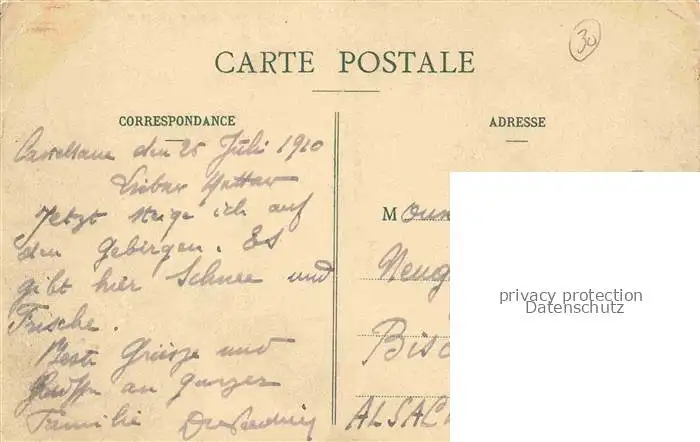 30
CARTE POSTALE
CORRESPONDANCE
ADRESSE
Castellane den 25 Juli 1910
Lieber
Jetzt steige ich auf
den Gebirgen. Es
gibt hier Schnee und
Frische.
Beste Grüsze und
an ganzer
Familie
M
Neug
Bisc
ALSAC
privacy protection
Datenschutz